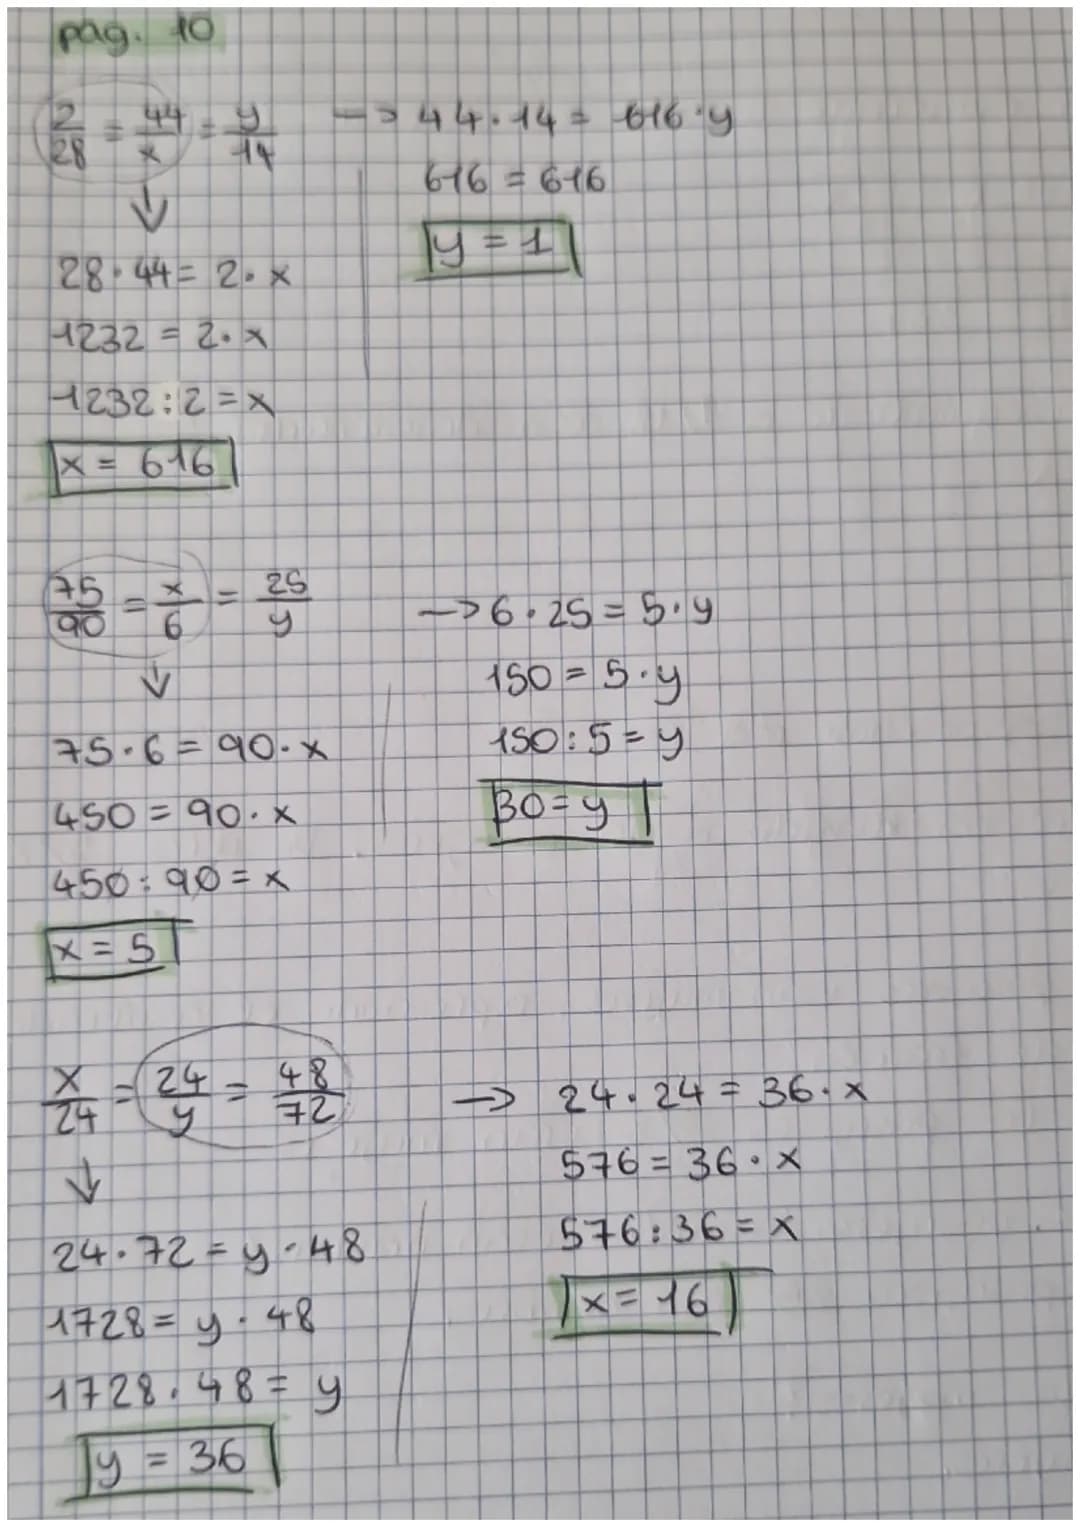 pag. 10
2/28 = 44/x = y/14
28·44 = 2·x
1232 = 2·x
1232:2 = x
x = 616
-> 44·14 = 616·y
616 = 616
y = 1
75/90 = x/6 = 25/y
75·6 = 90·x
450 = 90·x
450:90 = x
x = 5
-> 6·25 = 5·y
150 = 5·y
150:5 = y
30 = y
x/24 = 24/y = 48/72
24·72 = y·48
1728 = y·48
1728·48 = y
y = 36
-> 24·24 = 36·x
576 = 36·x
576:36 = x
x = 16